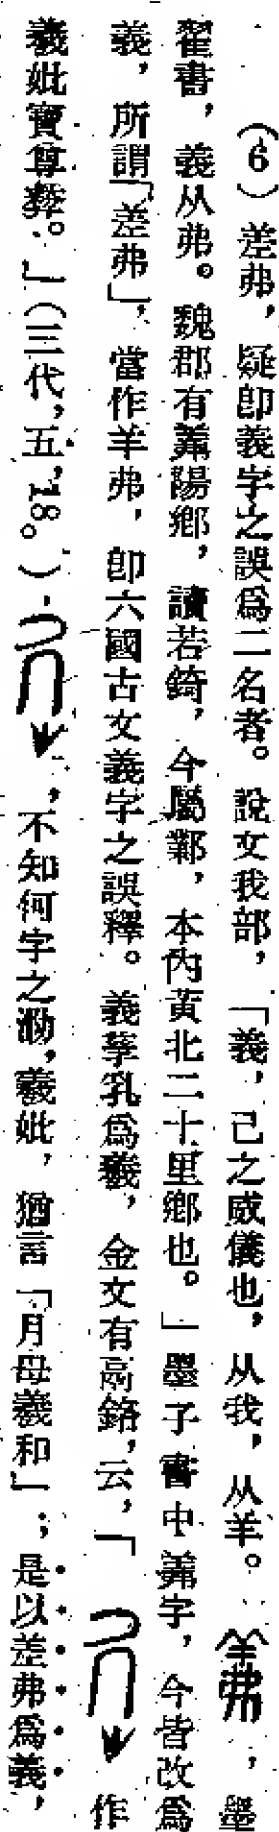 （6）差弗，疑卽義字之誤爲二名者。說文我部，「義，己之威儀也，从我，从羊。羛，墨
翟書，義从弗。魏郡有羛陽鄉，讀若錡，今屬鄴，本內黃北二十里鄉也。」墨子書中羛字，今皆改爲
義，所謂「差弗」，當作羊弗，卽六國古文義字之誤釋。義孳乳爲羲，金文有鬲銘，云，「作
羲妣寶尊彝。」（三代，五，18。），不知何字之泐，羲妣，猶言「月母羲和」；是以差弗爲義，